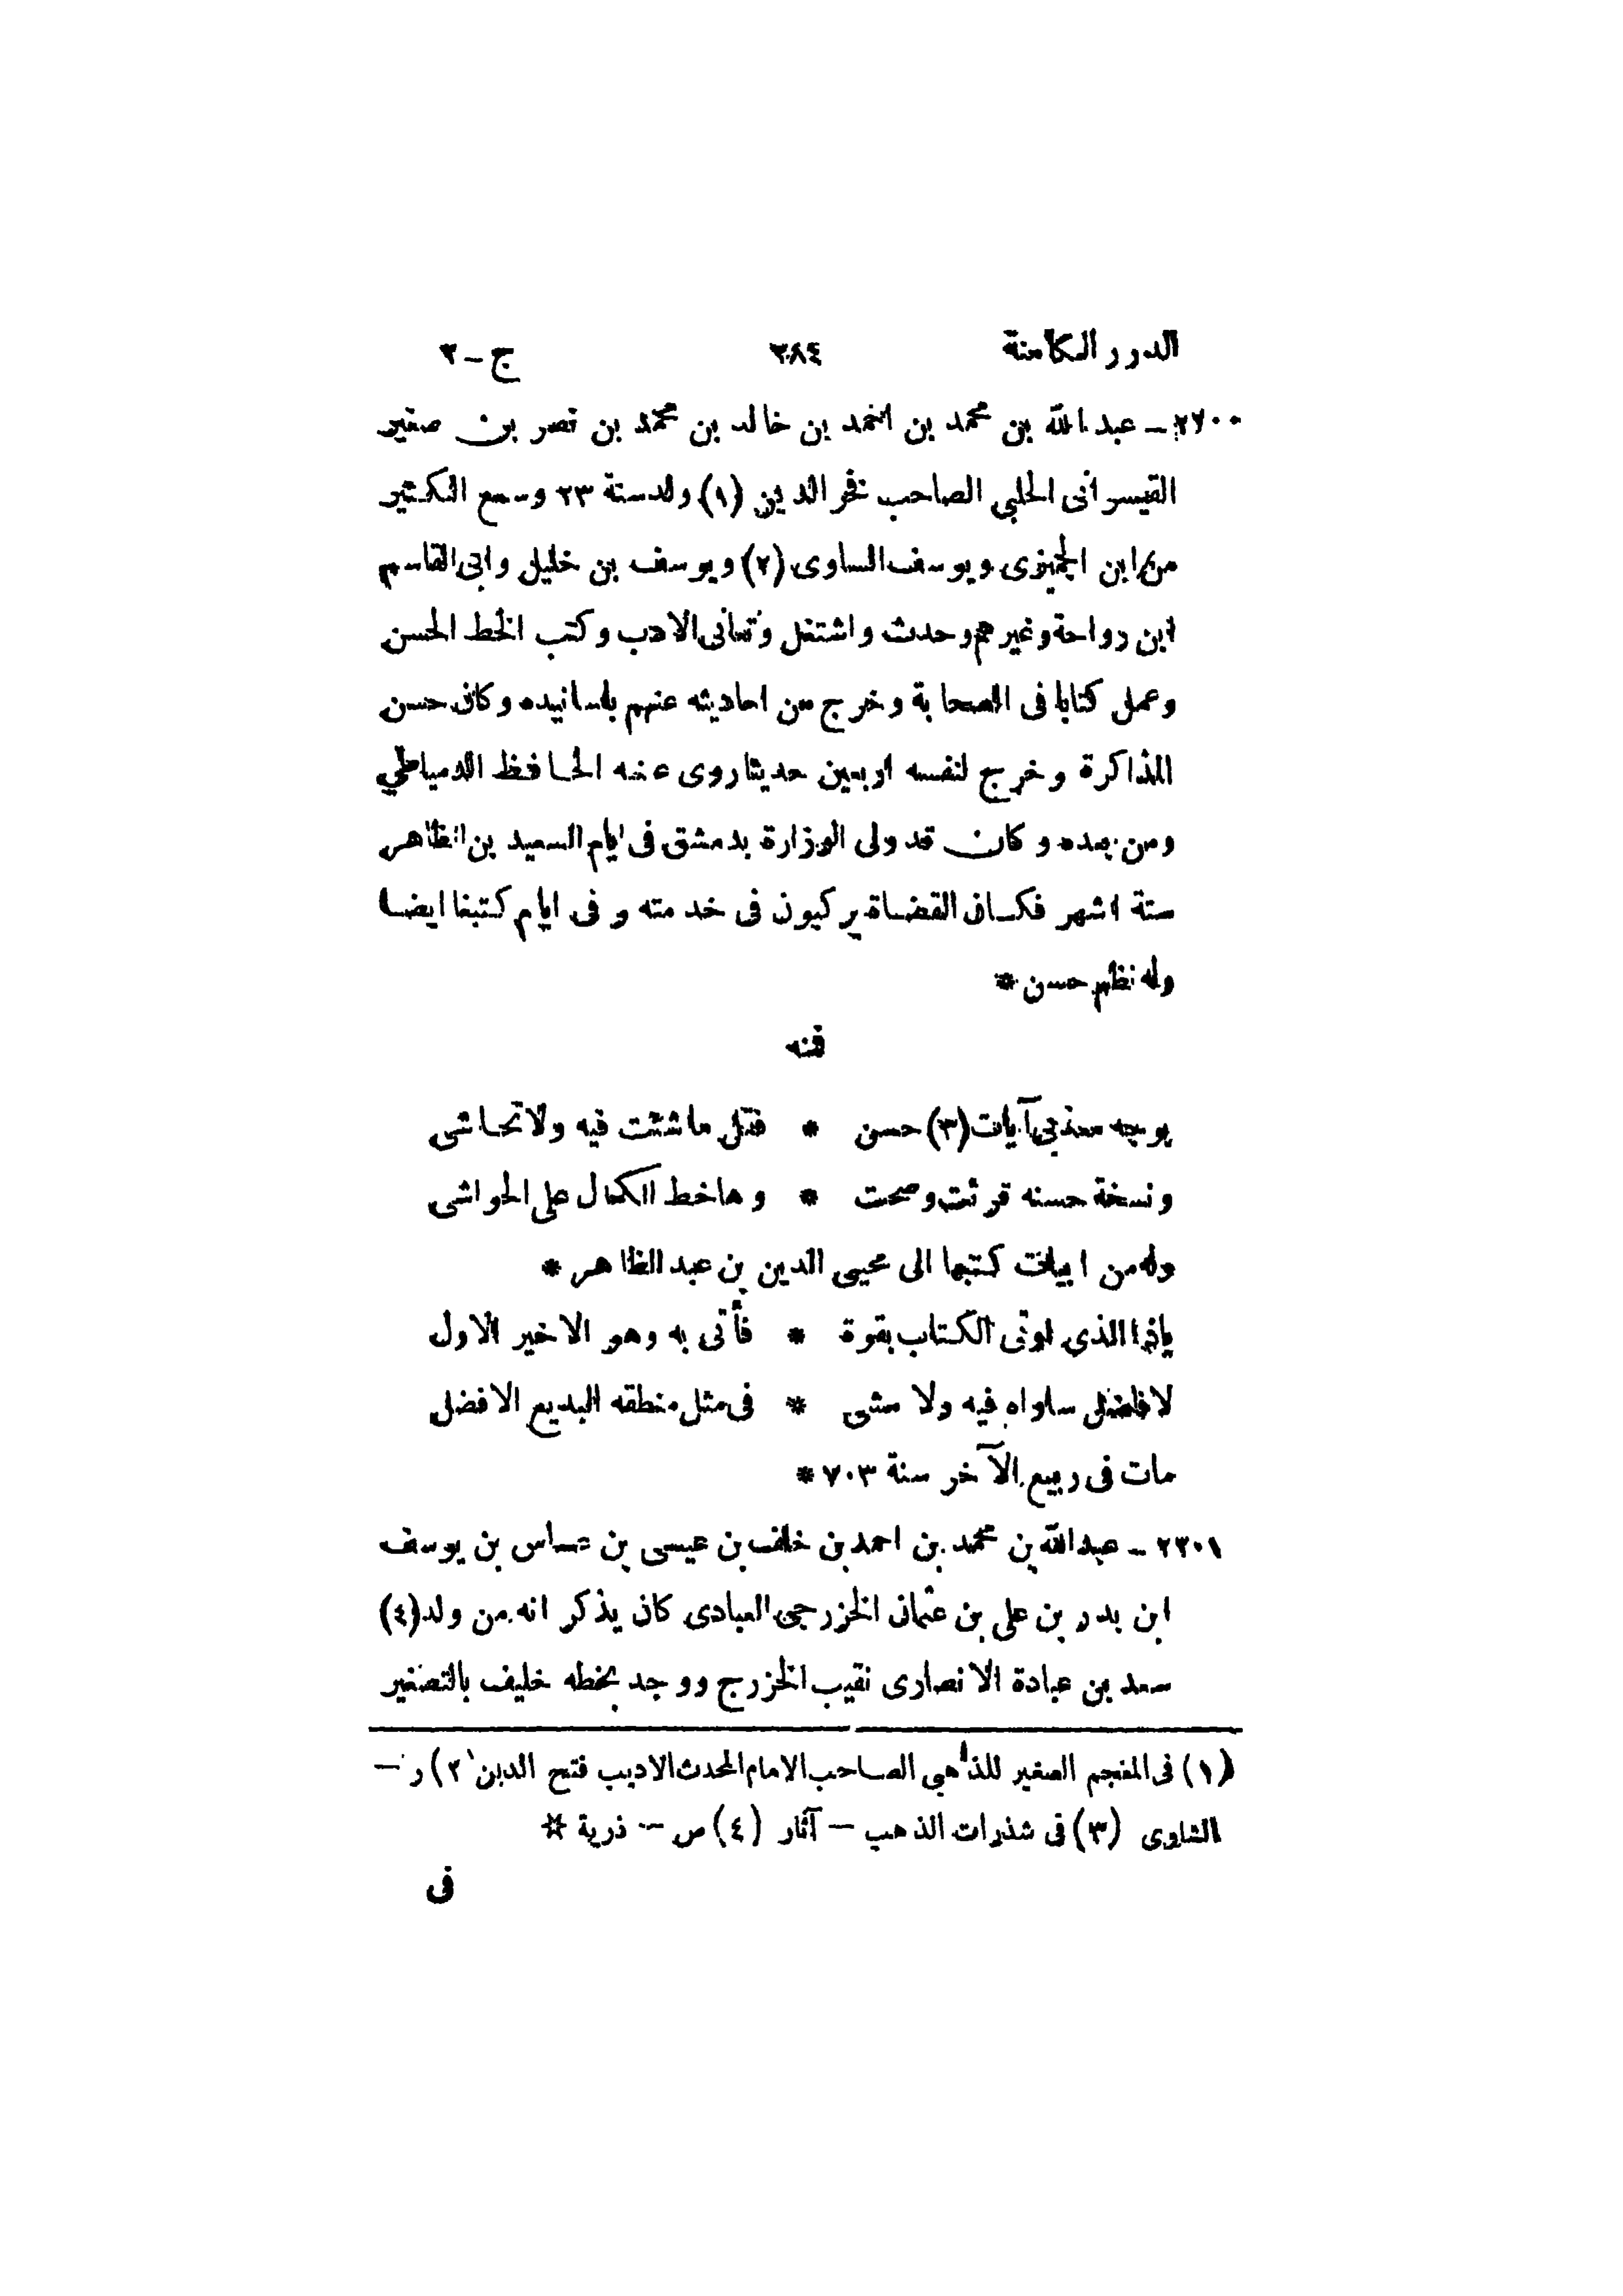 الدرر الكامنة ٢٨٤ ج - ٢
٢٢٠٠ - عبد الله بن محمد بن احمد بن خالد بن محمد بن نصر بن صغير
القيسرانى الحلبي الصاحب فخر الدين (١) ولد سنة ٢٣ وسمع الكثير
من ابن الجميزى ويوسف الساوى (٢) ويوسف بن خليل وابى القاسم
ابن رواحة وغيرهم وحدث واشتغل وتعانى الادب وكتب الخط الحسن
وعمل كتابا فى الصحابة وخرج من احاديثه عنهم باسانيده وكان حسن
المذاكرة وخرج لنفسه اربعين حديثا روى عنه الحافظ الدمياطي
ومن بعده وكان قد ولى الوزارة بدمشق فى ايام السعيد بن الظاهر
ستة اشهر فكان القضاة يركبون فى خدمته وفى ايام كتبغا ايضا
وله نظم حسن *
فمنه
بوجه معذبي آيات (٣) حسن * فقل ما شئت فيه ولا تحاشى
ونسخة حسنه قرئت وصحت * وها خط الكمال على الحواشى
وله من ابيات كتبها الى محيى الدين بن عبد الظاهر *
ياذا الذي اوتى الكتاب بقوة * فأتى به وهو الاخير الاول
لا فاضل ساواه فيه ولا مشى * فى مثل منطقه البديع الافضل
مات فى ربيع الآخر سنة ٧٠٣ *
٢٢٠١ - عبد الله بن محمد بن احمد بن خلف بن عيسى بن عساس بن يوسف
ابن بدر بن على بن عثمان الخزرجى العبادى كان يذكر انه من ولد (٤)
سعد بن عبادة الانصارى نقيب الخزرج ووجد بخطه خليف بالتصغير
(١) فى المعجم الصغير للذهبي الصاحب الامام المحدث الاديب فتح الدين (٢) ر -
الشاوى (٣) فى شذرات الذهب - آثار (٤) ص - ذرية *
فى